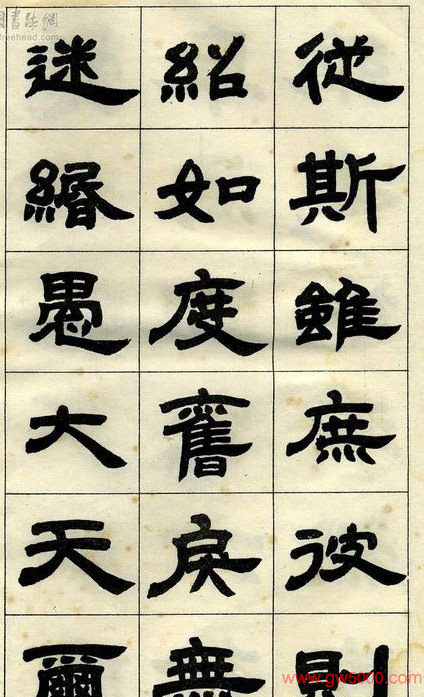 書法網
freehead.com
從斯雖庶彼則
紹如度舊戾無
迷緡愚大天爾
www.gw5000.com